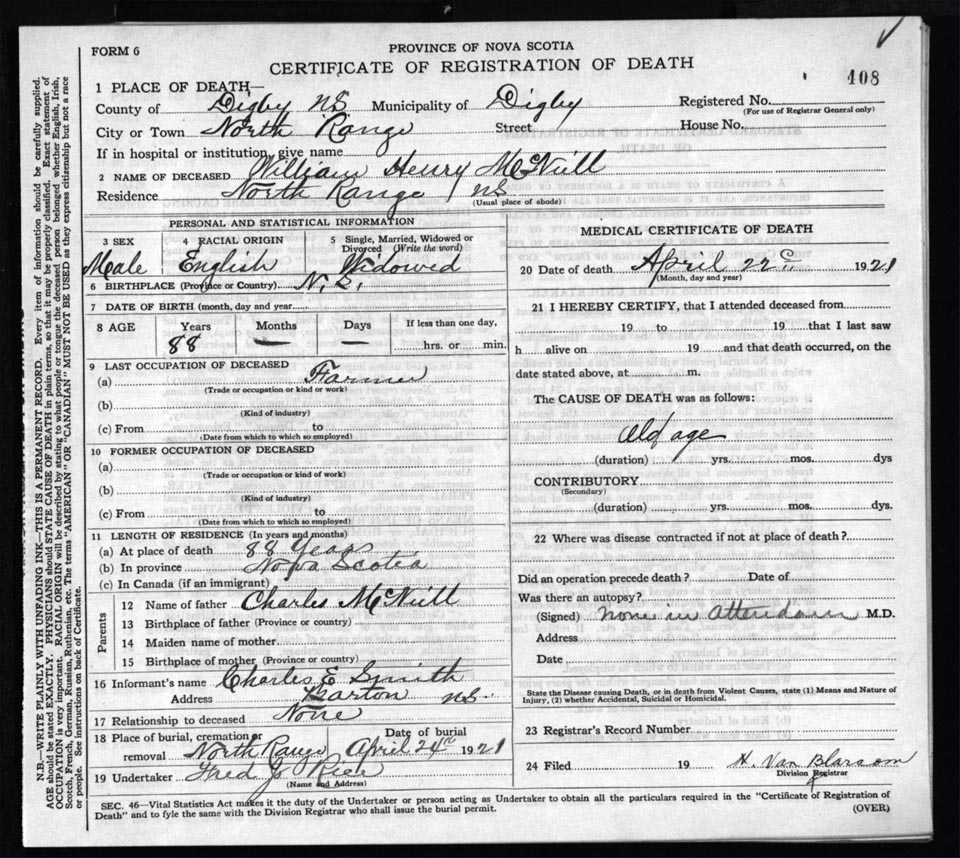 FORM 6
PROVINCE OF NOVA SCOTIA
CERTIFICATE OF REGISTRATION OF DEATH
408
1 PLACE OF DEATH—
County of Digby NS Municipality of Digby Registered No.
(For use of Registrar General only)
City or Town North Range Street House No.
If in hospital or institution, give name
2 NAME OF DECEASED William Henry McNeill
Residence North Range NS
(Usual place of abode)
PERSONAL AND STATISTICAL INFORMATION
3 SEX 4 RACIAL ORIGIN 5 Single, Married, Widowed or Divorced (Write the word)
Male English Widowed
6 BIRTHPLACE (Province or Country) N.S.
7 DATE OF BIRTH (month, day and year)
8 AGE Years Months Days If less than one day,
88 — — hrs. or min.
9 LAST OCCUPATION OF DECEASED
(a) Farmer
(Trade or occupation or kind or work)
(b)
(Kind of industry)
(c) From to
(Date from which to which so employed)
10 FORMER OCCUPATION OF DECEASED
(a)
(Trade or occupation or kind of work)
(b)
(Kind of industry)
(c) From to
(Date from which to which so employed)
11 LENGTH OF RESIDENCE (In years and months)
(a) At place of death 88 Years
(b) In province Nova Scotia
(c) In Canada (if an immigrant)
Parents
12 Name of father Charles McNeill
13 Birthplace of father (Province or country)
14 Maiden name of mother
15 Birthplace of mother (Province or country)
16 Informant's name Charles E Smith
Address Barton NS
17 Relationship to deceased None
18 Place of burial, cremation or removal North Range Date of burial April 24th 1921
19 Undertaker Fred J Rice
(Name and Address)
MEDICAL CERTIFICATE OF DEATH
20 Date of death April 22 1921
(Month, day and year)
21 I HEREBY CERTIFY, that I attended deceased from
19 to 19 that I last saw
h alive on 19 and that death occurred, on the
date stated above, at m.
The CAUSE OF DEATH was as follows:
Old age
(duration) yrs. mos. dys
CONTRIBUTORY
(Secondary)
(duration) yrs. mos. dys.
22 Where was disease contracted if not at place of death?
Did an operation precede death? Date of
Was there an autopsy?
(Signed) none in attendance M.D.
Address
Date
State the Disease causing Death, or in death from Violent Causes, state (1) Means and Nature of
Injury, (2) whether Accidental, Suicidal or Homicidal.
23 Registrar's Record Number
24 Filed 19 H. Van Blarcom
Division Registrar
SEC. 46—Vital Statistics Act makes it the duty of the Undertaker or person acting as Undertaker to obtain all the particulars required in the "Certificate of Registration of
Death" and to fyle the same with the Division Registrar who shall issue the burial permit.
(OVER)
N.B.—WRITE PLAINLY WITH UNFADING INK—THIS IS A PERMANENT RECORD. Every item of information should be carefully supplied.
AGE should be stated EXACTLY. PHYSICIANS should STATE CAUSE OF DEATH in plain terms, so that it may be properly classified. Exact statement of
OCCUPATION is very important. RACIAL ORIGIN will be described by stating to what people or tongue the deceased person belonged, whether English, Irish,
Scotch, French, German, Russian, Ruthenian, etc. The terms "AMERICAN" OR "CANADIAN" MUST NOT BE USED as they express citizenship but not a race
or people. See instructions on back of Certificate.